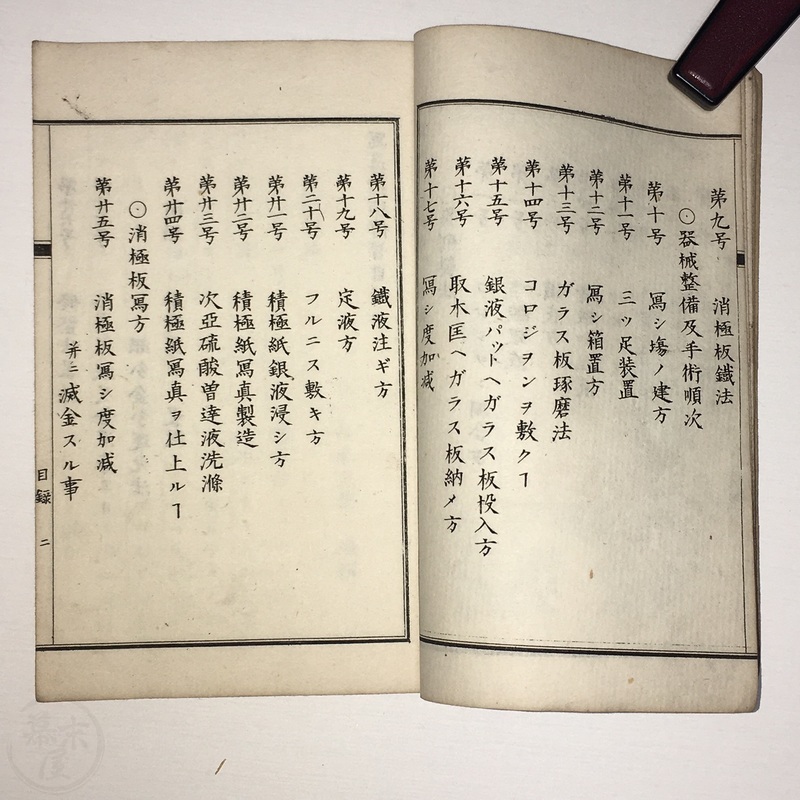 第九号 消極板鐵法
⊙器械整備及手術順次
第十号 冩シ塲ノ建方
第十一号 三ッ足装置
第十二号 冩シ箱置方
第十三号 ガラス板琢磨法
第十四号 コロジヲンヲ敷クヿ
第十五号 銀液パットヘガラス板投入方
第十六号 取木匡ヘガラス板納メ方
第十七号 冩シ度加减
第十八号 鐵液注ギ方
第十九号 定液方
第二十号 フルニス敷キ方
第廿一号 積極紙銀液浸シ方
第廿二号 積極紙冩真製造
第廿三号 次亞硫酸曽達液洗滌
第廿四号 積極紙冩真ヲ仕上ルヿ
⊙消極板冩方
第廿五号 消極板冩シ度加減
并ニ滅金スル事
目録 二
幕末屋